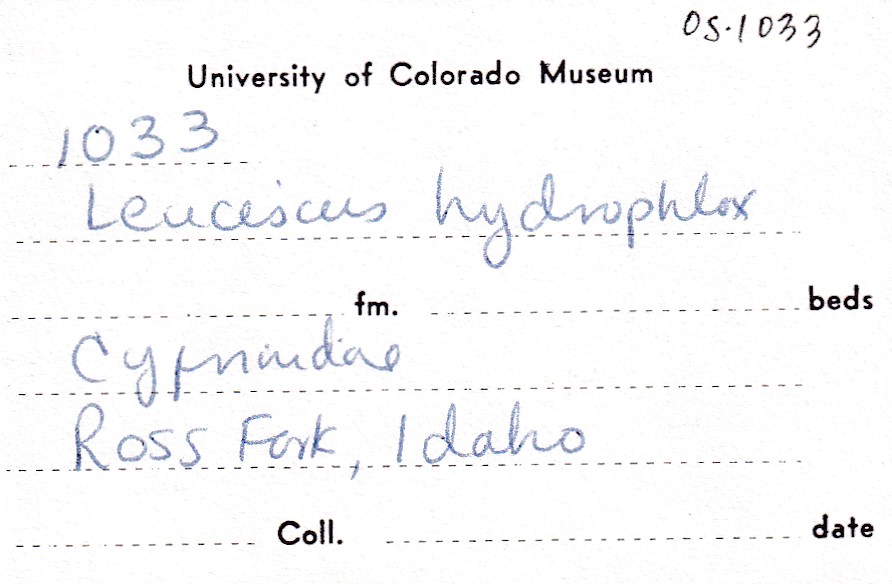 OS-1033
University of Colorado Museum
1033
Leuciscus hydrophlox
fm. beds
Cyprinidae
Ross Fork, Idaho
Coll. date